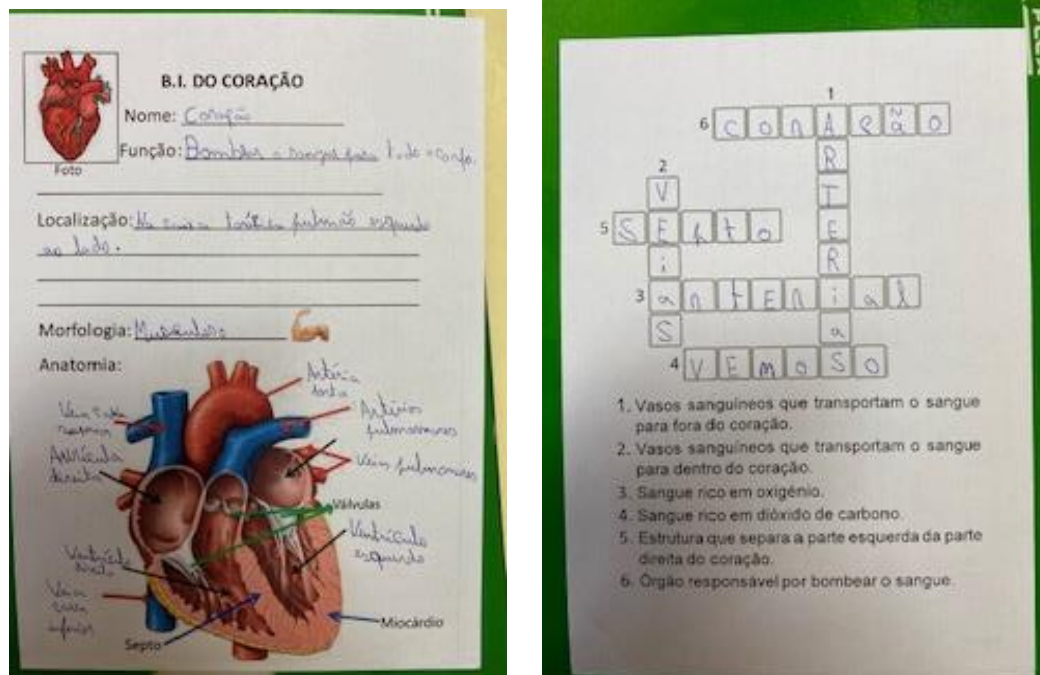 B.I. DO CORAÇÃO
Nome: Coração
Função: Bombear o sangue para todo o corpo.
Foto
Localização: Na caixa torácica pulmão esquerdo
ao lado.
Morfologia: Musculoso
Anatomia:
Artéria
aorta
Veia cava
superior
Artérias
pulmonares
Aurícula
direita
Veias pulmonares
Válvulas
Ventrículo
esquerdo
Ventrículo
direito
Veia
cava
inferior
Miocárdio
Septo
1
6 CORAÇÃO
2
5 SEpto
3 arterial
4 VEnoso
ARTERias
VEiaS
1. Vasos sanguíneos que transportam o sangue
para fora do coração.
2. Vasos sanguíneos que transportam o sangue
para dentro do coração.
3. Sangue rico em oxigénio.
4. Sangue rico em dióxido de carbono.
5. Estrutura que separa a parte esquerda da parte
direita do coração.
6. Órgão responsável por bombear o sangue.